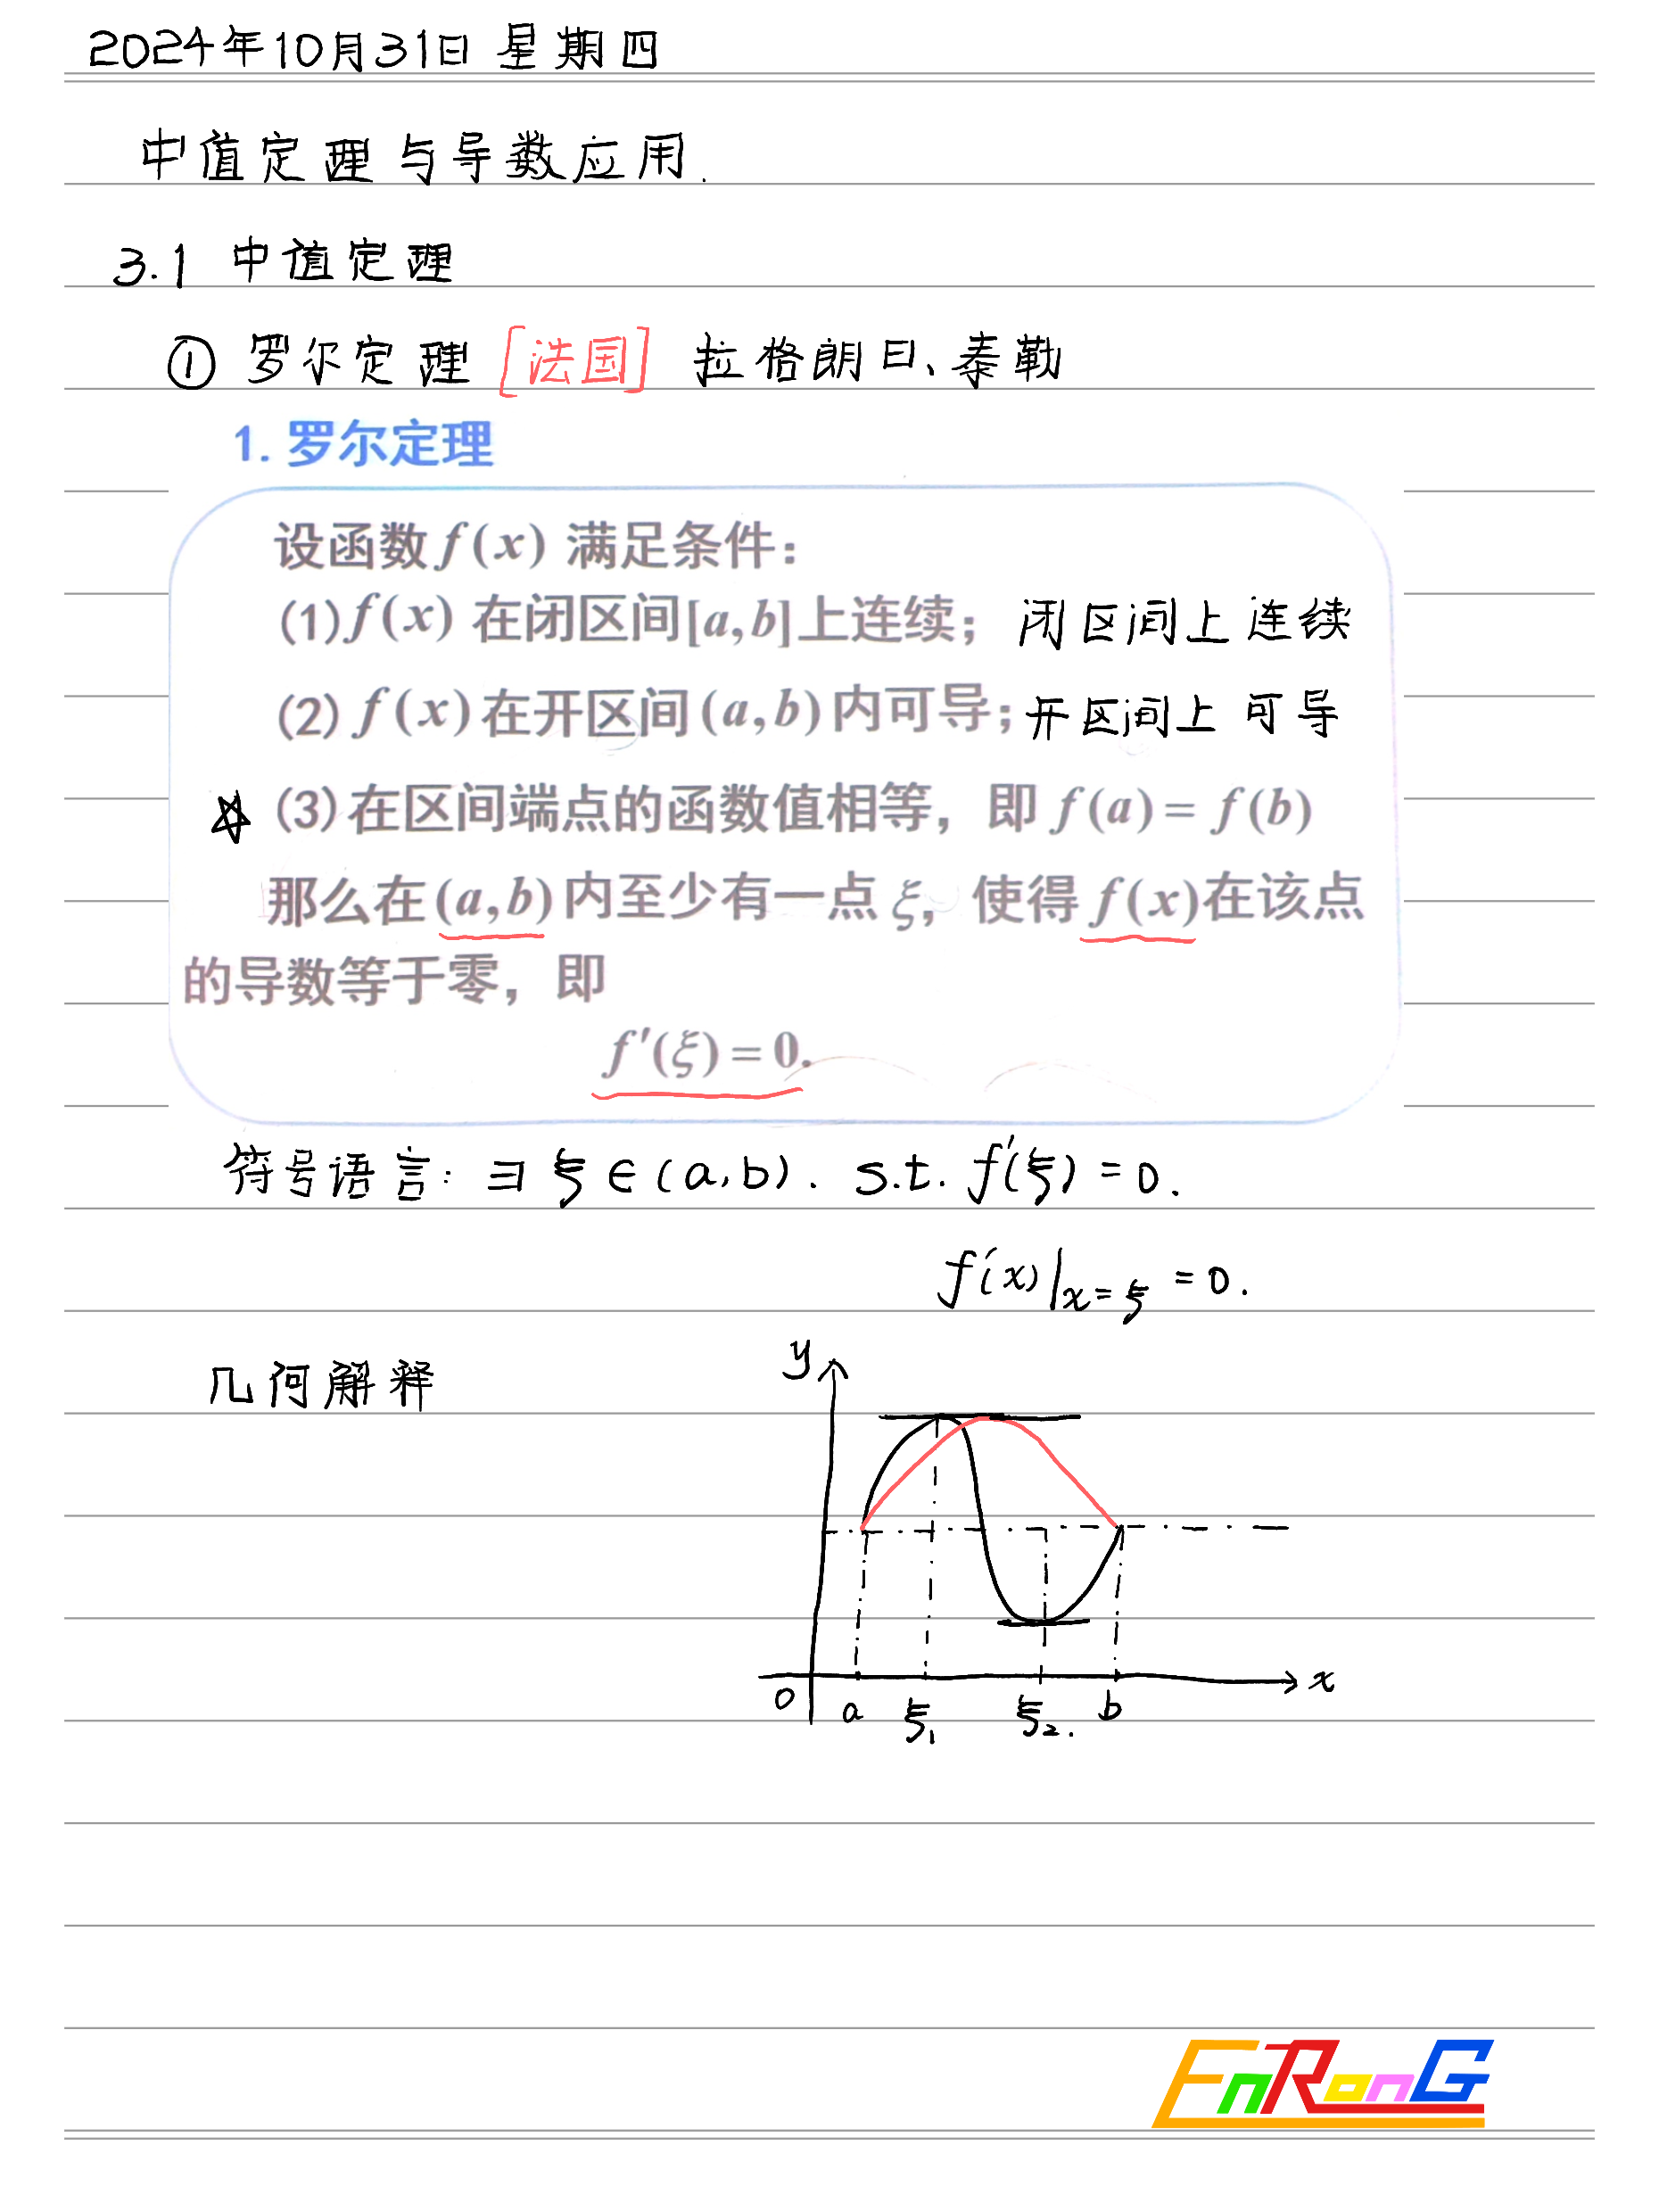 2024年10月31日 星期四
中值定理与导数应用.
3.1 中值定理
① 罗尔定理 [法国] 拉格朗日、泰勒
1. 罗尔定理
设函数 f(x) 满足条件：
(1) f(x) 在闭区间[a,b]上连续； 闭区间上连续
(2) f(x) 在开区间(a,b)内可导； 开区间上可导
☆ (3) 在区间端点的函数值相等，即 f(a) = f(b)
那么在(a,b)内至少有一点 ξ，使得 f(x)在该点
的导数等于零，即
f′(ξ) = 0.
符号语言: ∃ ξ ∈ (a,b). s.t. f′(ξ) = 0.
f′(x)|x=ξ = 0.
几何解释
y
0 a ξ₁ ξ₂. b x
EnRonG